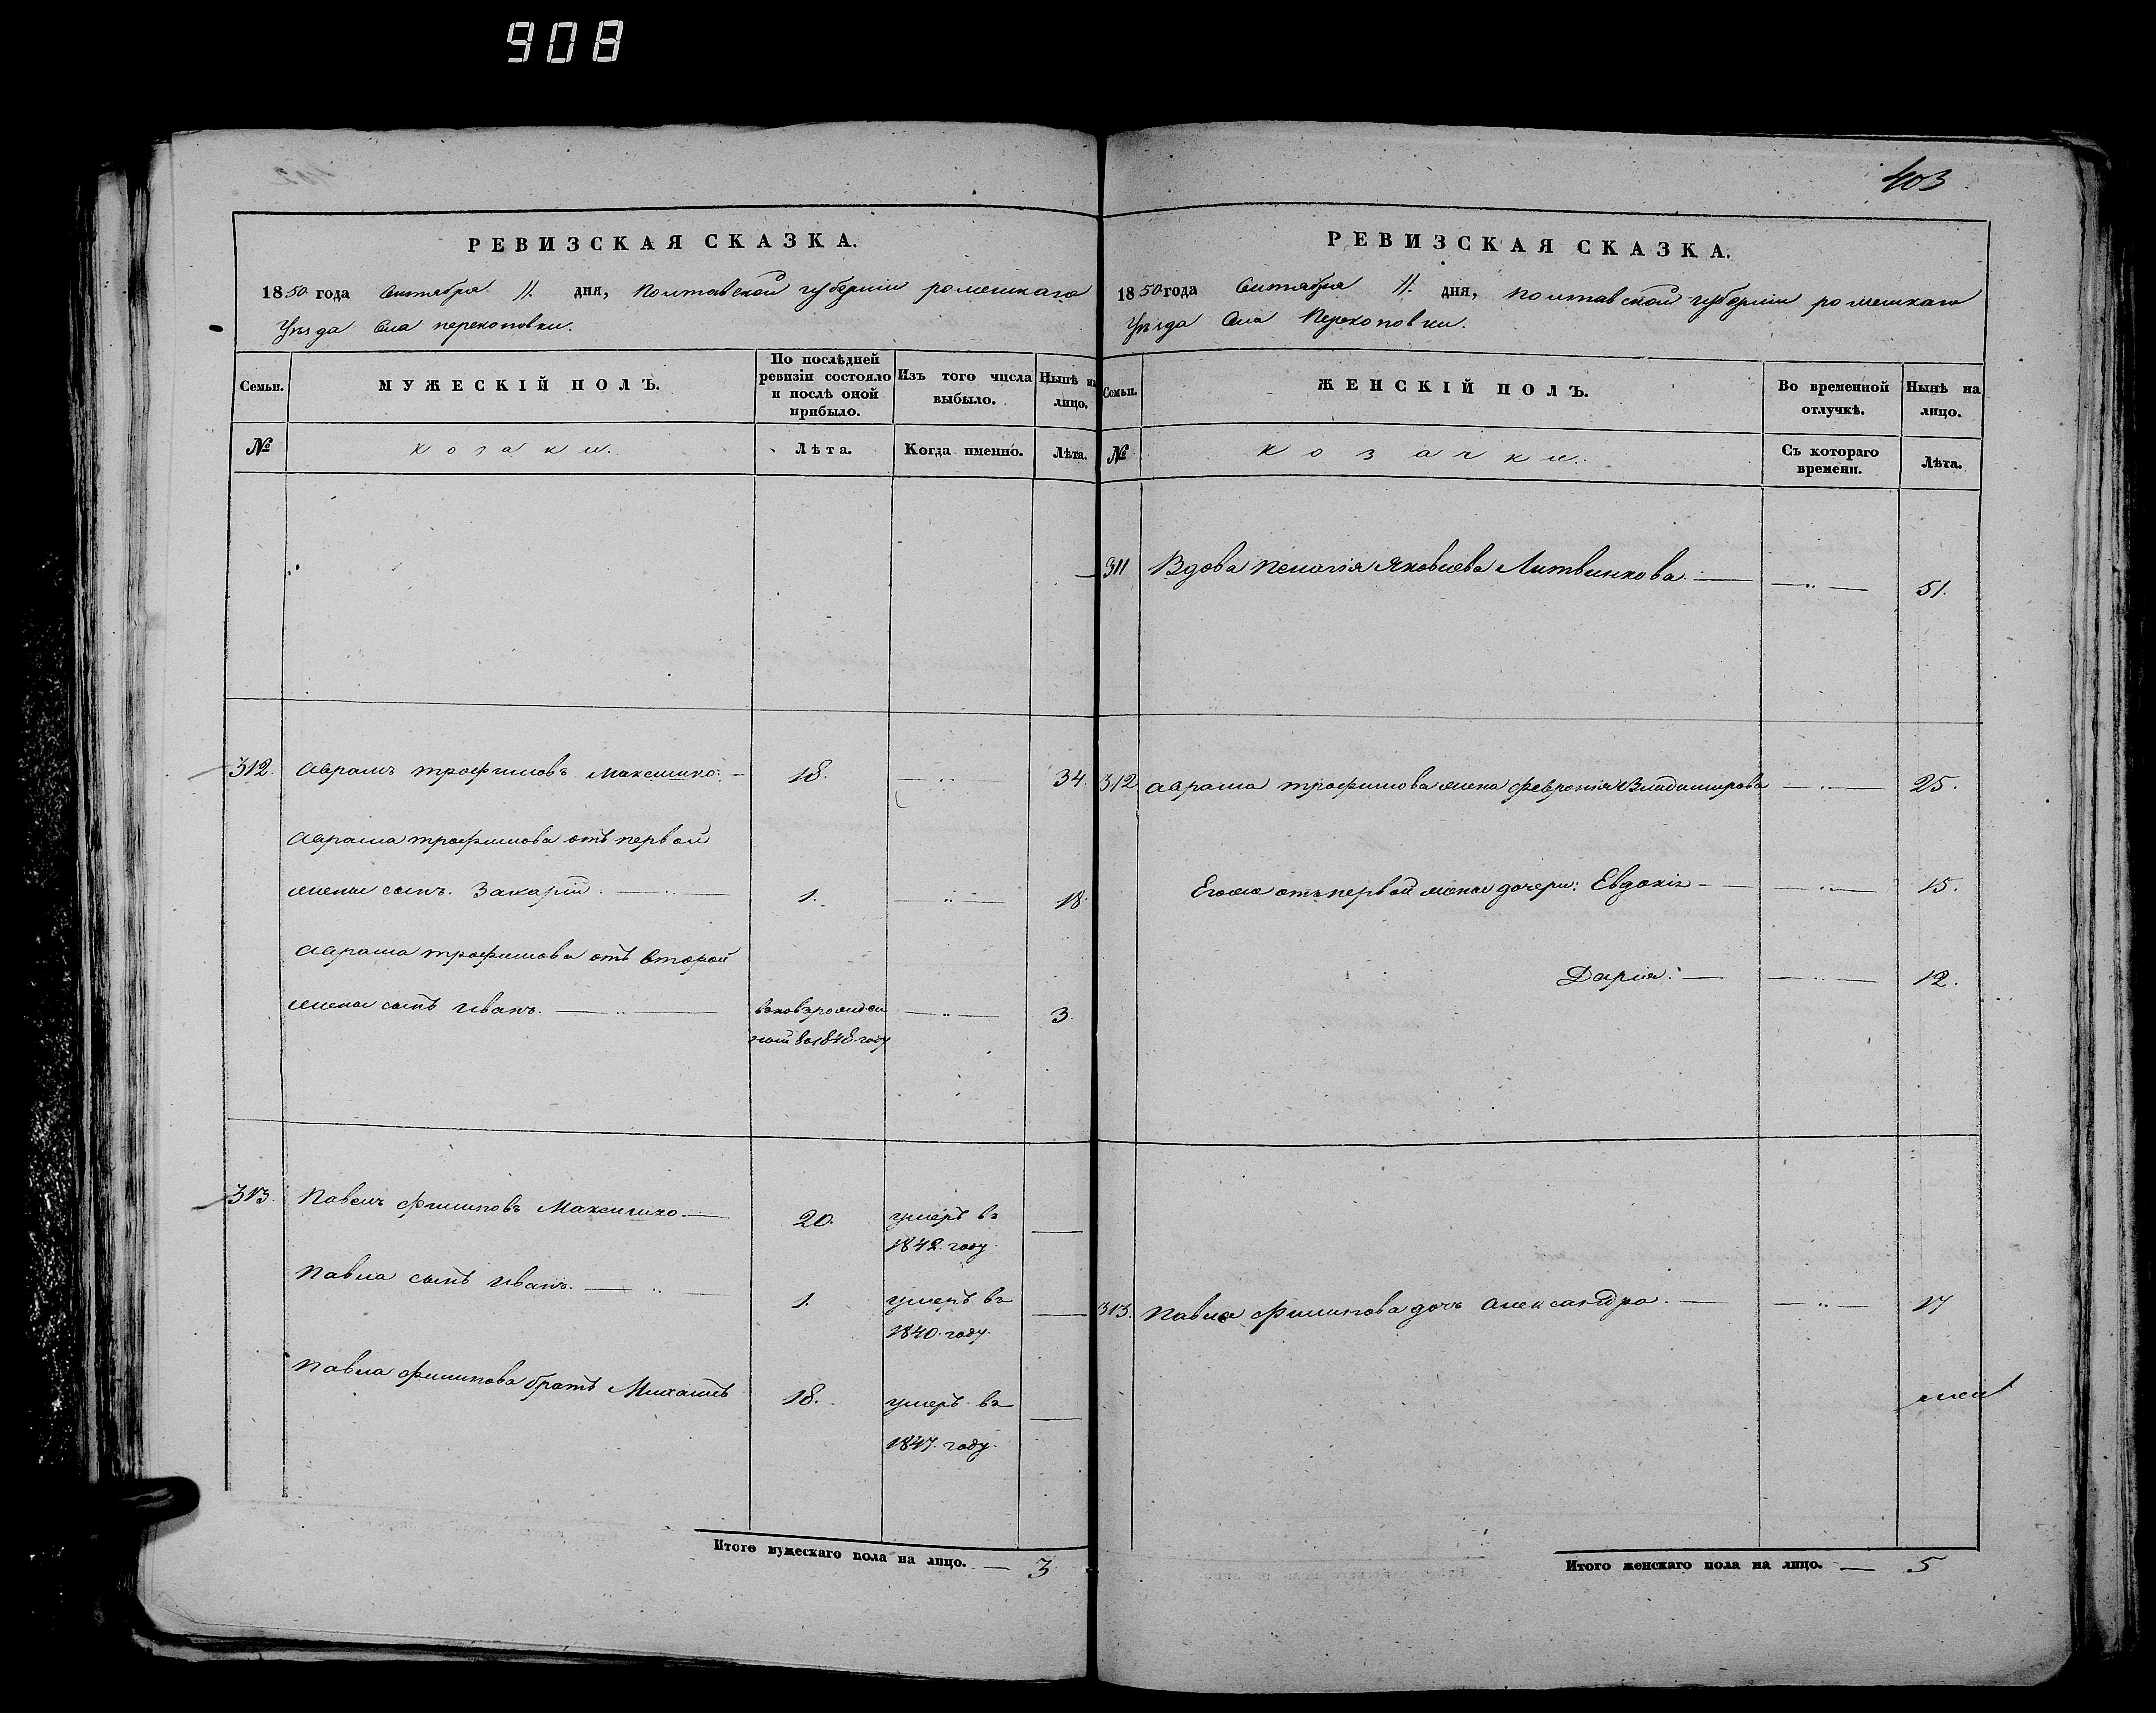 908
403
РЕВИЗСКАЯ СКАЗКА.
1850 года Сентября 11. дня, Полтавской губерніи роменскаго
Уѣзда Села перекоповки.
Семьи.
МУЖЕСКІЙ ПОЛЪ.
По послѣдней ревизіи состояло и послѣ оной прибыло.
Изъ того числа выбыло.
Нынѣ на лицо.
№
козаки.
Лѣта.
Когда именно.
Лѣта.
312. Аврамъ трофимовъ Максимко. 18. 34.
Аврама трофимова отъ первой
жены сынъ. Захарій. 1. 18.
Аврама трофимова отъ второй
жены сынъ Иванъ. вновьрожден 3.
ной в 1848. году
313. Павелъ Филиповъ Максимко. 20. умеръ въ
1842. году.
Павла сынъ Иванъ. 1. умеръ въ
1840. году.
Павла Филипова братъ Михаилъ 18. умеръ въ
1847. году.
Итого мужескаго пола на лицо. 3
РЕВИЗСКАЯ СКАЗКА.
1850 года Сентября 11. дня, Полтавской губерніи роменскаго
Уѣзда Села Перекоповки.
Семьи.
ЖЕНСКІЙ ПОЛЪ.
Во временной отлучкѣ.
Нынѣ на лицо.
№
козачки.
Съ котораго времени.
Лѣта.
311 Вдова Пелагія Яковлева Литвинкова. 51.
312 Аврама трофимова жена Февронія Владимирова 25.
Егоже отъ первой жены дочери: Евдокія 15.
Дарія: 12.
313. Павла Филипова дочь Александра. 17
Итого женскаго пола на лицо. 5